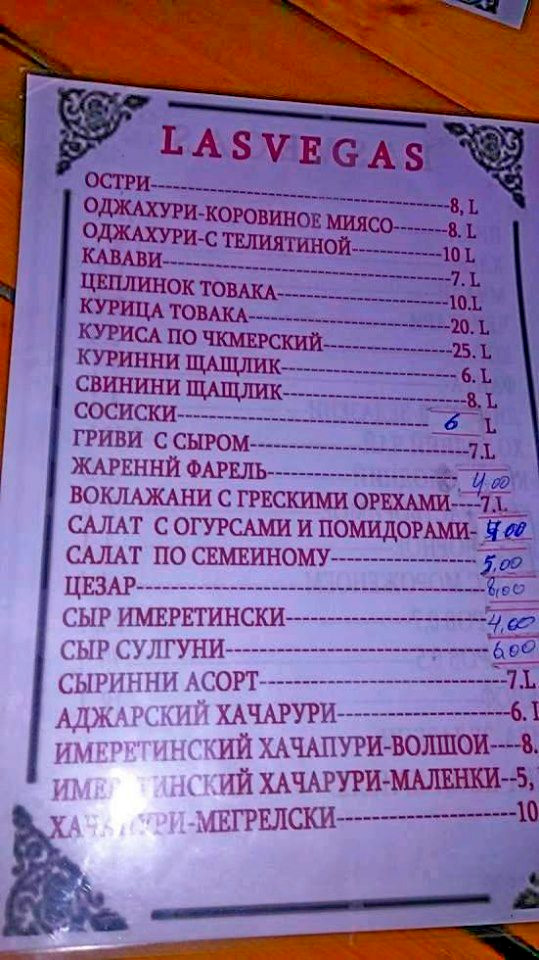 LASVEGAS
ОСТРИ----------------------------8, L
ОДЖАХУРИ-КОРОВИНОЕ МИЯСО--------8. L
ОДЖАХУРИ-С ТЕЛИЯТИНОЙ-----------10 L
КАВАВИ---------------------------7. L
ЦЕПЛИНОК ТОВАКА-----------------10.L
КУРИЦА ТОВАКА-------------------20. L
КУРИСА ПО ЧКМЕРСКИЙ-------------25. L
КУРИННИ ЩАЩЛИК------------------6. L
СВИНИНИ ЩАЩЛИК------------------8. L
СОСИСКИ-------------------------6 L
ГРИВИ С СЫРОМ-------------------7.L
ЖАРЕННЙ ФАРЕЛЬ------------------4.00
ВОКЛАЖАНИ С ГРЕСКИМИ ОРЕХАМИ----7.L
САЛАТ С ОГУРСАМИ И ПОМИДОРАМИ-
САЛАТ ПО СЕМЕИНОМУ--------------5,00
ЦЕЗАР---------------------------8,00
СЫР ИМЕРЕТИНСКИ-----------------4,00
СЫР СУЛГУНИ---------------------6,00
СЫРИННИ АСОРТ-------------------7.L
АДЖАРСКИЙ ХАЧАРУРИ--------------6. L
ИМЕРЕТИНСКИЙ ХАЧАПУРИ-ВОЛШОИ----8.
ИМЕРЕТИНСКИЙ ХАЧАРУРИ-МАЛЕНКИ--5,
ХАЧАПУРИ-МЕГРЕЛСКИ--------------10